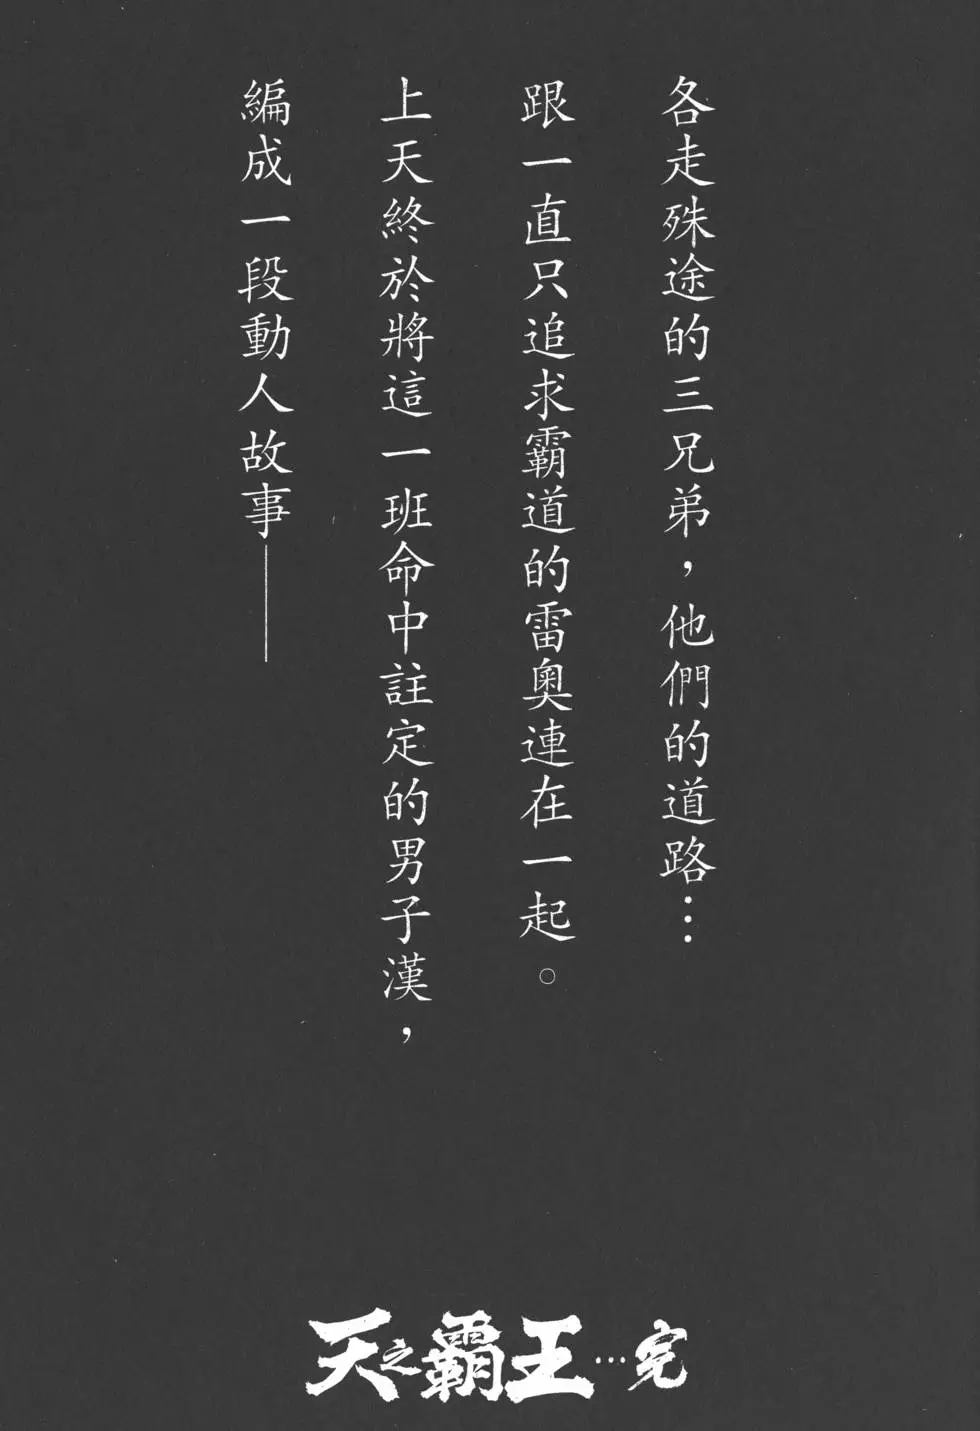 各走殊途的三兄弟，他們的道路…
跟一直只追求霸道的雷奧連在一起。
上天終於將這一班命中註定的男子漢，
編成一段動人故事——
天之霸王…完